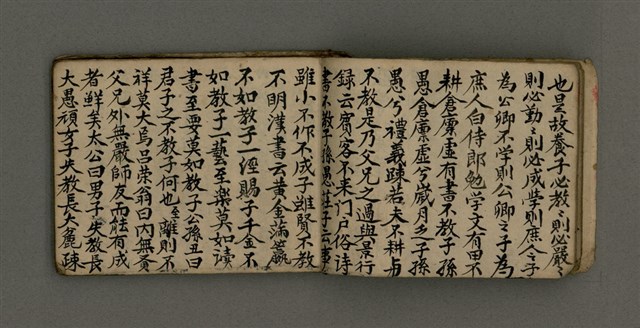 也是故養子必教〻則必嚴〻
則必勤〻則必成学則庶人之子
為公卿不学則公卿之子為
庶人白侍郎勉学文有田不
耕倉廩虛有書不教子孫
愚倉廩虛兮歲月乏子孫
愚兮禮義踈若夫不耕与
不教是乃父兄之過與景行
録云賓客不来门户俗诗
書不教子孫愚庄子云事
雖小不作不成子雖賢不教
不明漢書云黄金滿籝
不如教子一經賜子千金不
如教子一藝至樂莫如讀
書至要莫如教子公孫丑曰
君子之不教子何也至離則不
祥莫大焉吕荣翁曰内無賢
父兄外無嚴師友而能有成
者鲜矣太公曰男子失教長
大愚頑女子失教長大麁踈